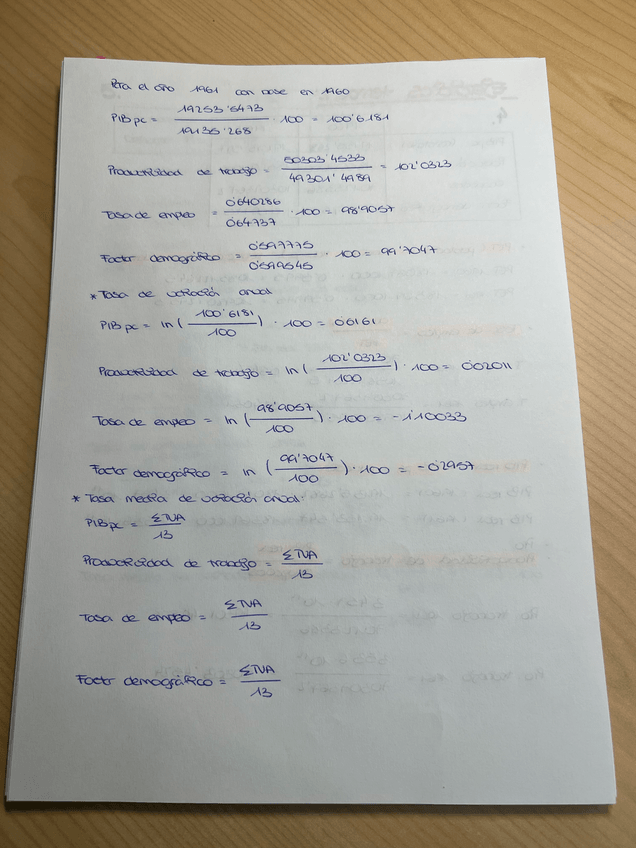 Para el año 1961 con base en 1960
PIB pc = 19253'5473 / 19135'268 · 100 = 100'6181
Productividad de trabajo = 50303'4533 / 49301'4989 = 102'0323
Tasa de empleo = 0'640286 / 0'64737 · 100 = 98'9057
Factor demográfico = 0'597775 / 0'599545 · 100 = 99'7047
* Tasa de variación anual
PIB pc = ln ( 100'6181 / 100 ) · 100 = 0'6161
Productividad de trabajo = ln ( 102'0323 / 100 ) · 100 = 0'02011
Tasa de empleo = ln ( 98'9057 / 100 ) · 100 = -1'10033
Factor demográfico = ln ( 99'7047 / 100 ) · 100 = -0'2957
* Tasa media de variación anual:
PIB pc = ΣTVA / 13
Productividad de trabajo = ΣTVA / 13
Tasa de empleo = ΣTVA / 13
Factor demográfico = ΣTVA / 13